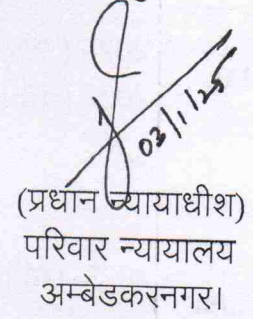 03/1/25
(प्रधान न्यायाधीश)
परिवार न्यायालय
अम्बेडकरनगर।